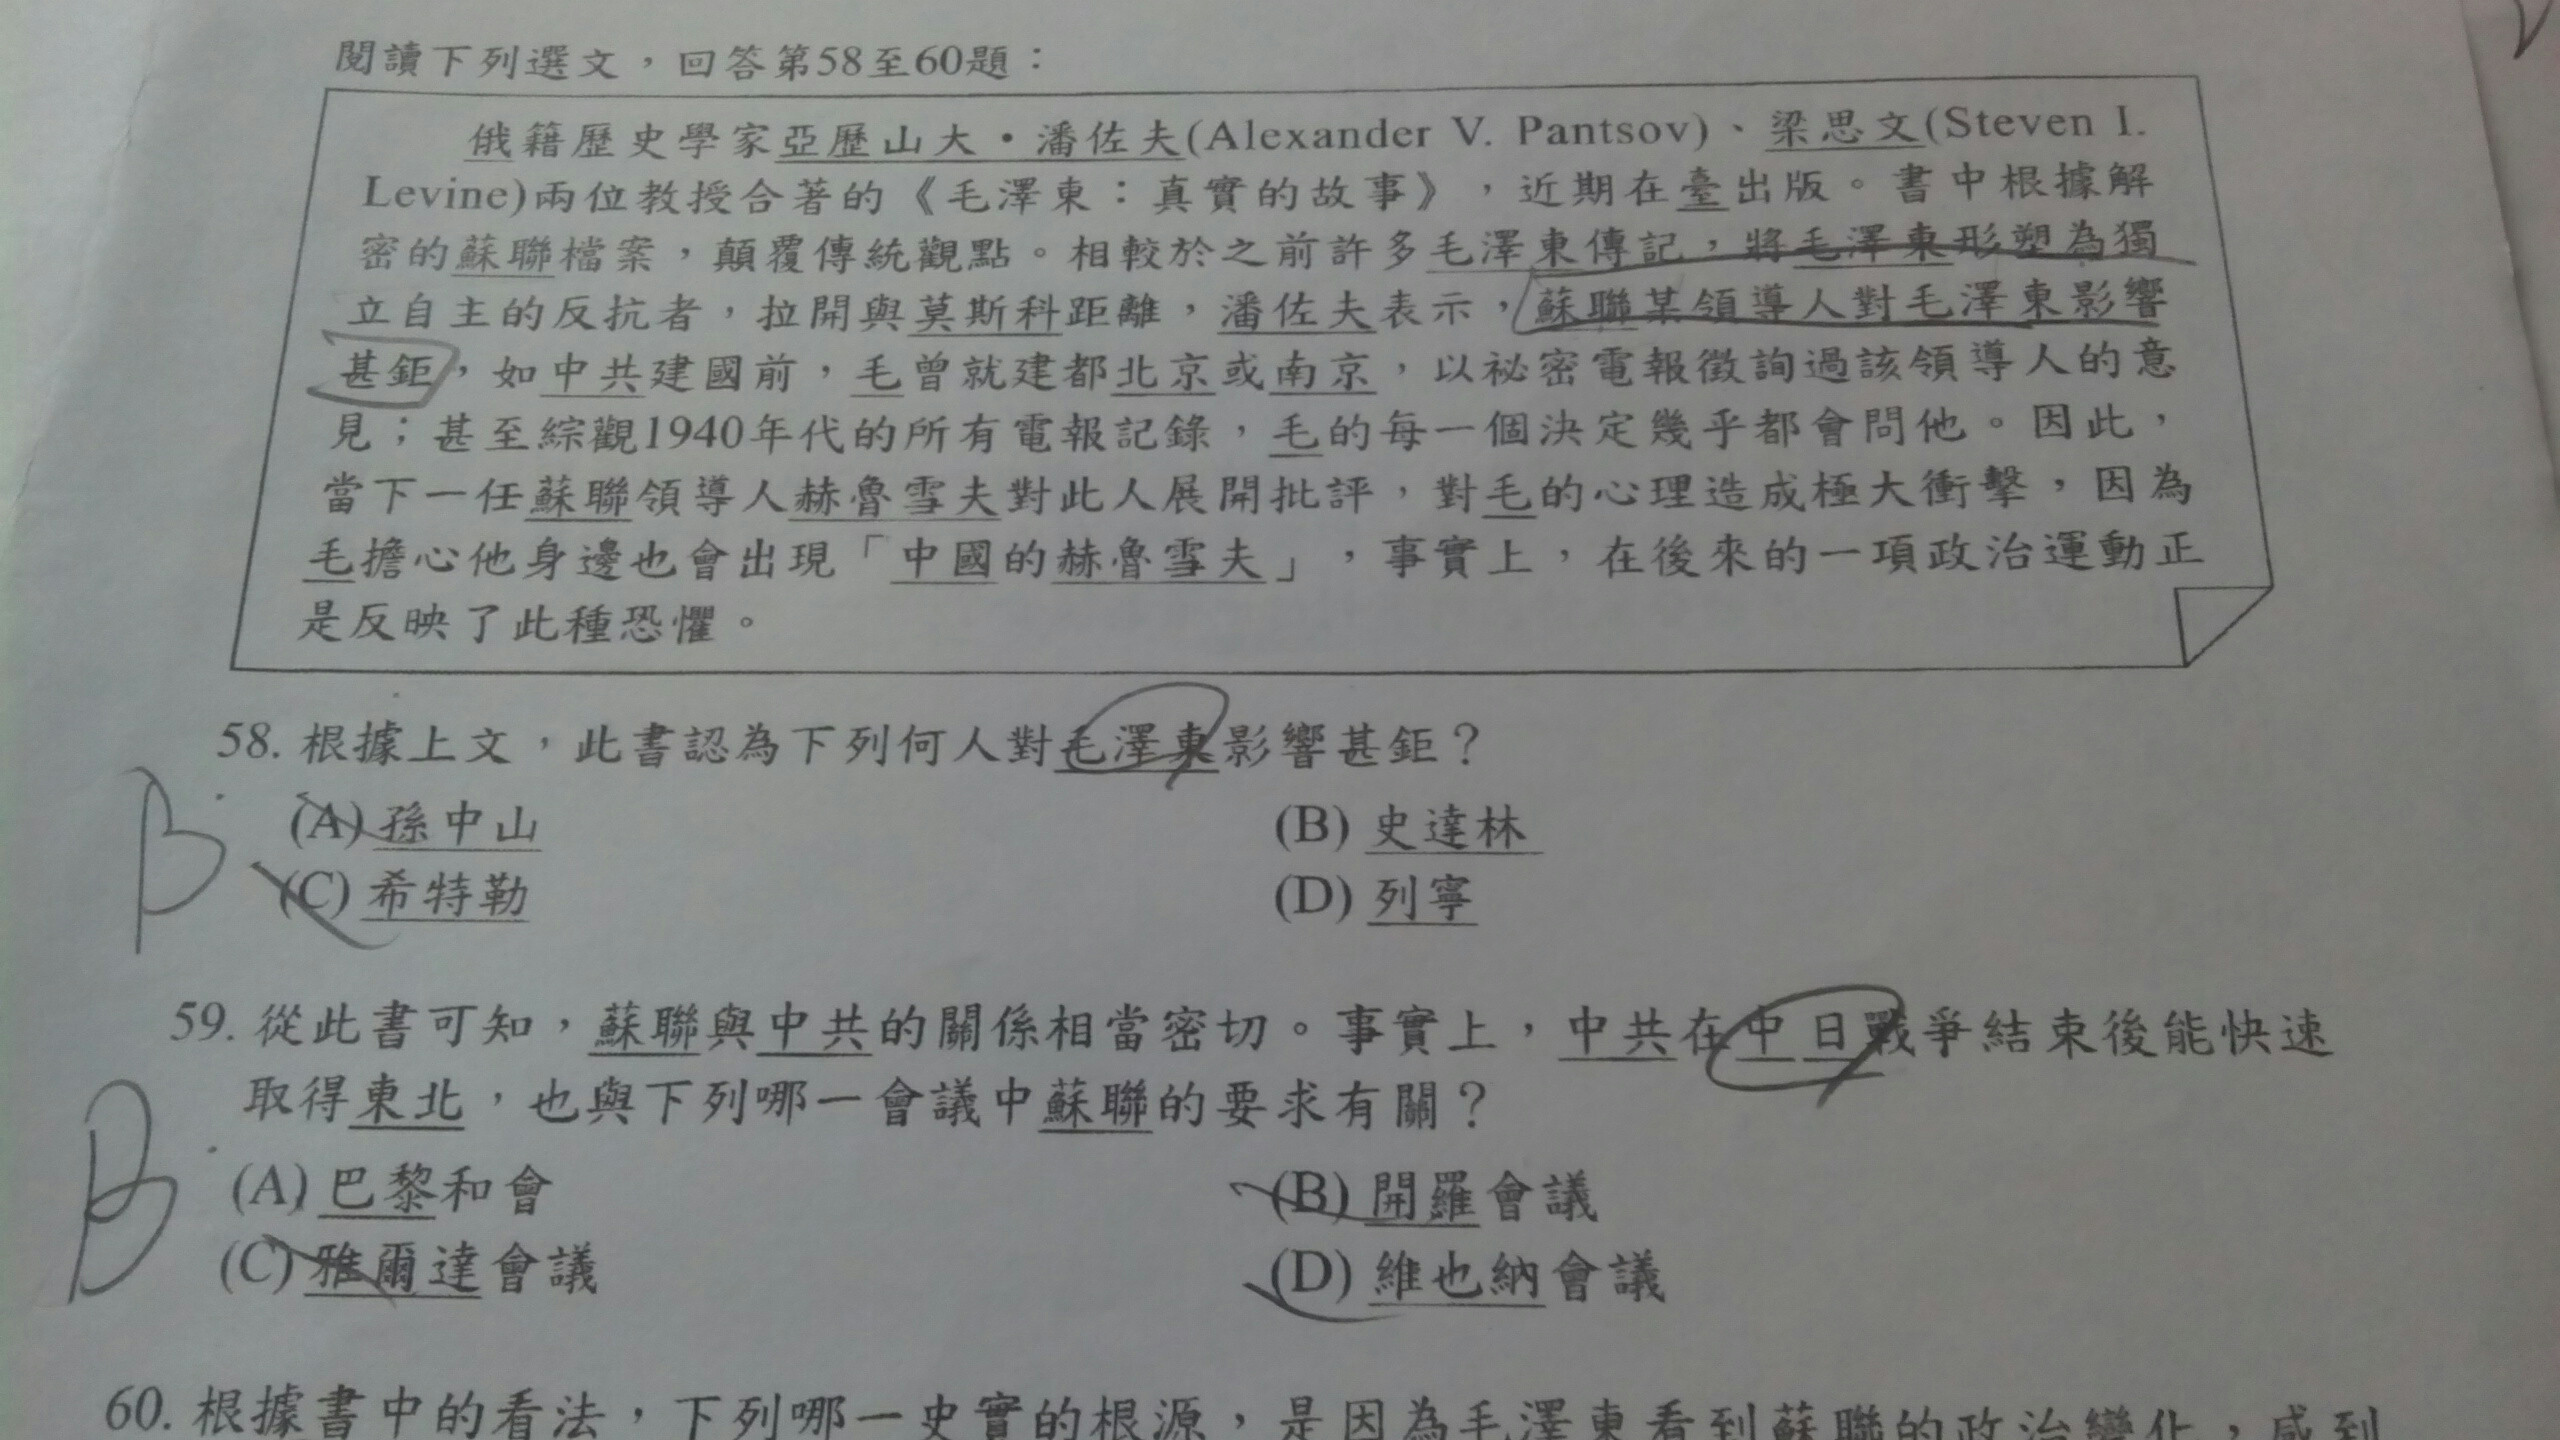 閱讀下列選文，回答第58至60題：
俄籍歷史學家亞歷山大‧潘佐夫(Alexander V. Pantsov)、梁思文(Steven I.
Levine)兩位教授合著的《毛澤東：真實的故事》，近期在臺出版。書中根據解
密的蘇聯檔案，顛覆傳統觀點。相較於之前許多毛澤東傳記，將毛澤東形塑為獨
立自主的反抗者，拉開與莫斯科距離，潘佐夫表示，蘇聯某領導人對毛澤東影響
甚鉅，如中共建國前，毛曾就建都北京或南京，以祕密電報徵詢過該領導人的意
見；甚至綜觀1940年代的所有電報記錄，毛的每一個決定幾乎都會問他。因此，
當下一任蘇聯領導人赫魯雪夫對此人展開批評，對毛的心理造成極大衝擊，因為
毛擔心他身邊也會出現「中國的赫魯雪夫」，事實上，在後來的一項政治運動正
是反映了此種恐懼。
58. 根據上文，此書認為下列何人對毛澤東影響甚鉅？
B
(A) 孫中山 (B) 史達林
(C) 希特勒 (D) 列寧
59. 從此書可知，蘇聯與中共的關係相當密切。事實上，中共在中日戰爭結束後能快速
取得東北，也與下列哪一會議中蘇聯的要求有關？
B
(A) 巴黎和會 (B) 開羅會議
(C) 雅爾達會議 (D) 維也納會議
60. 根據書中的看法，下列哪一史實的根源，是因為毛澤東看到蘇聯的政治變化，感到